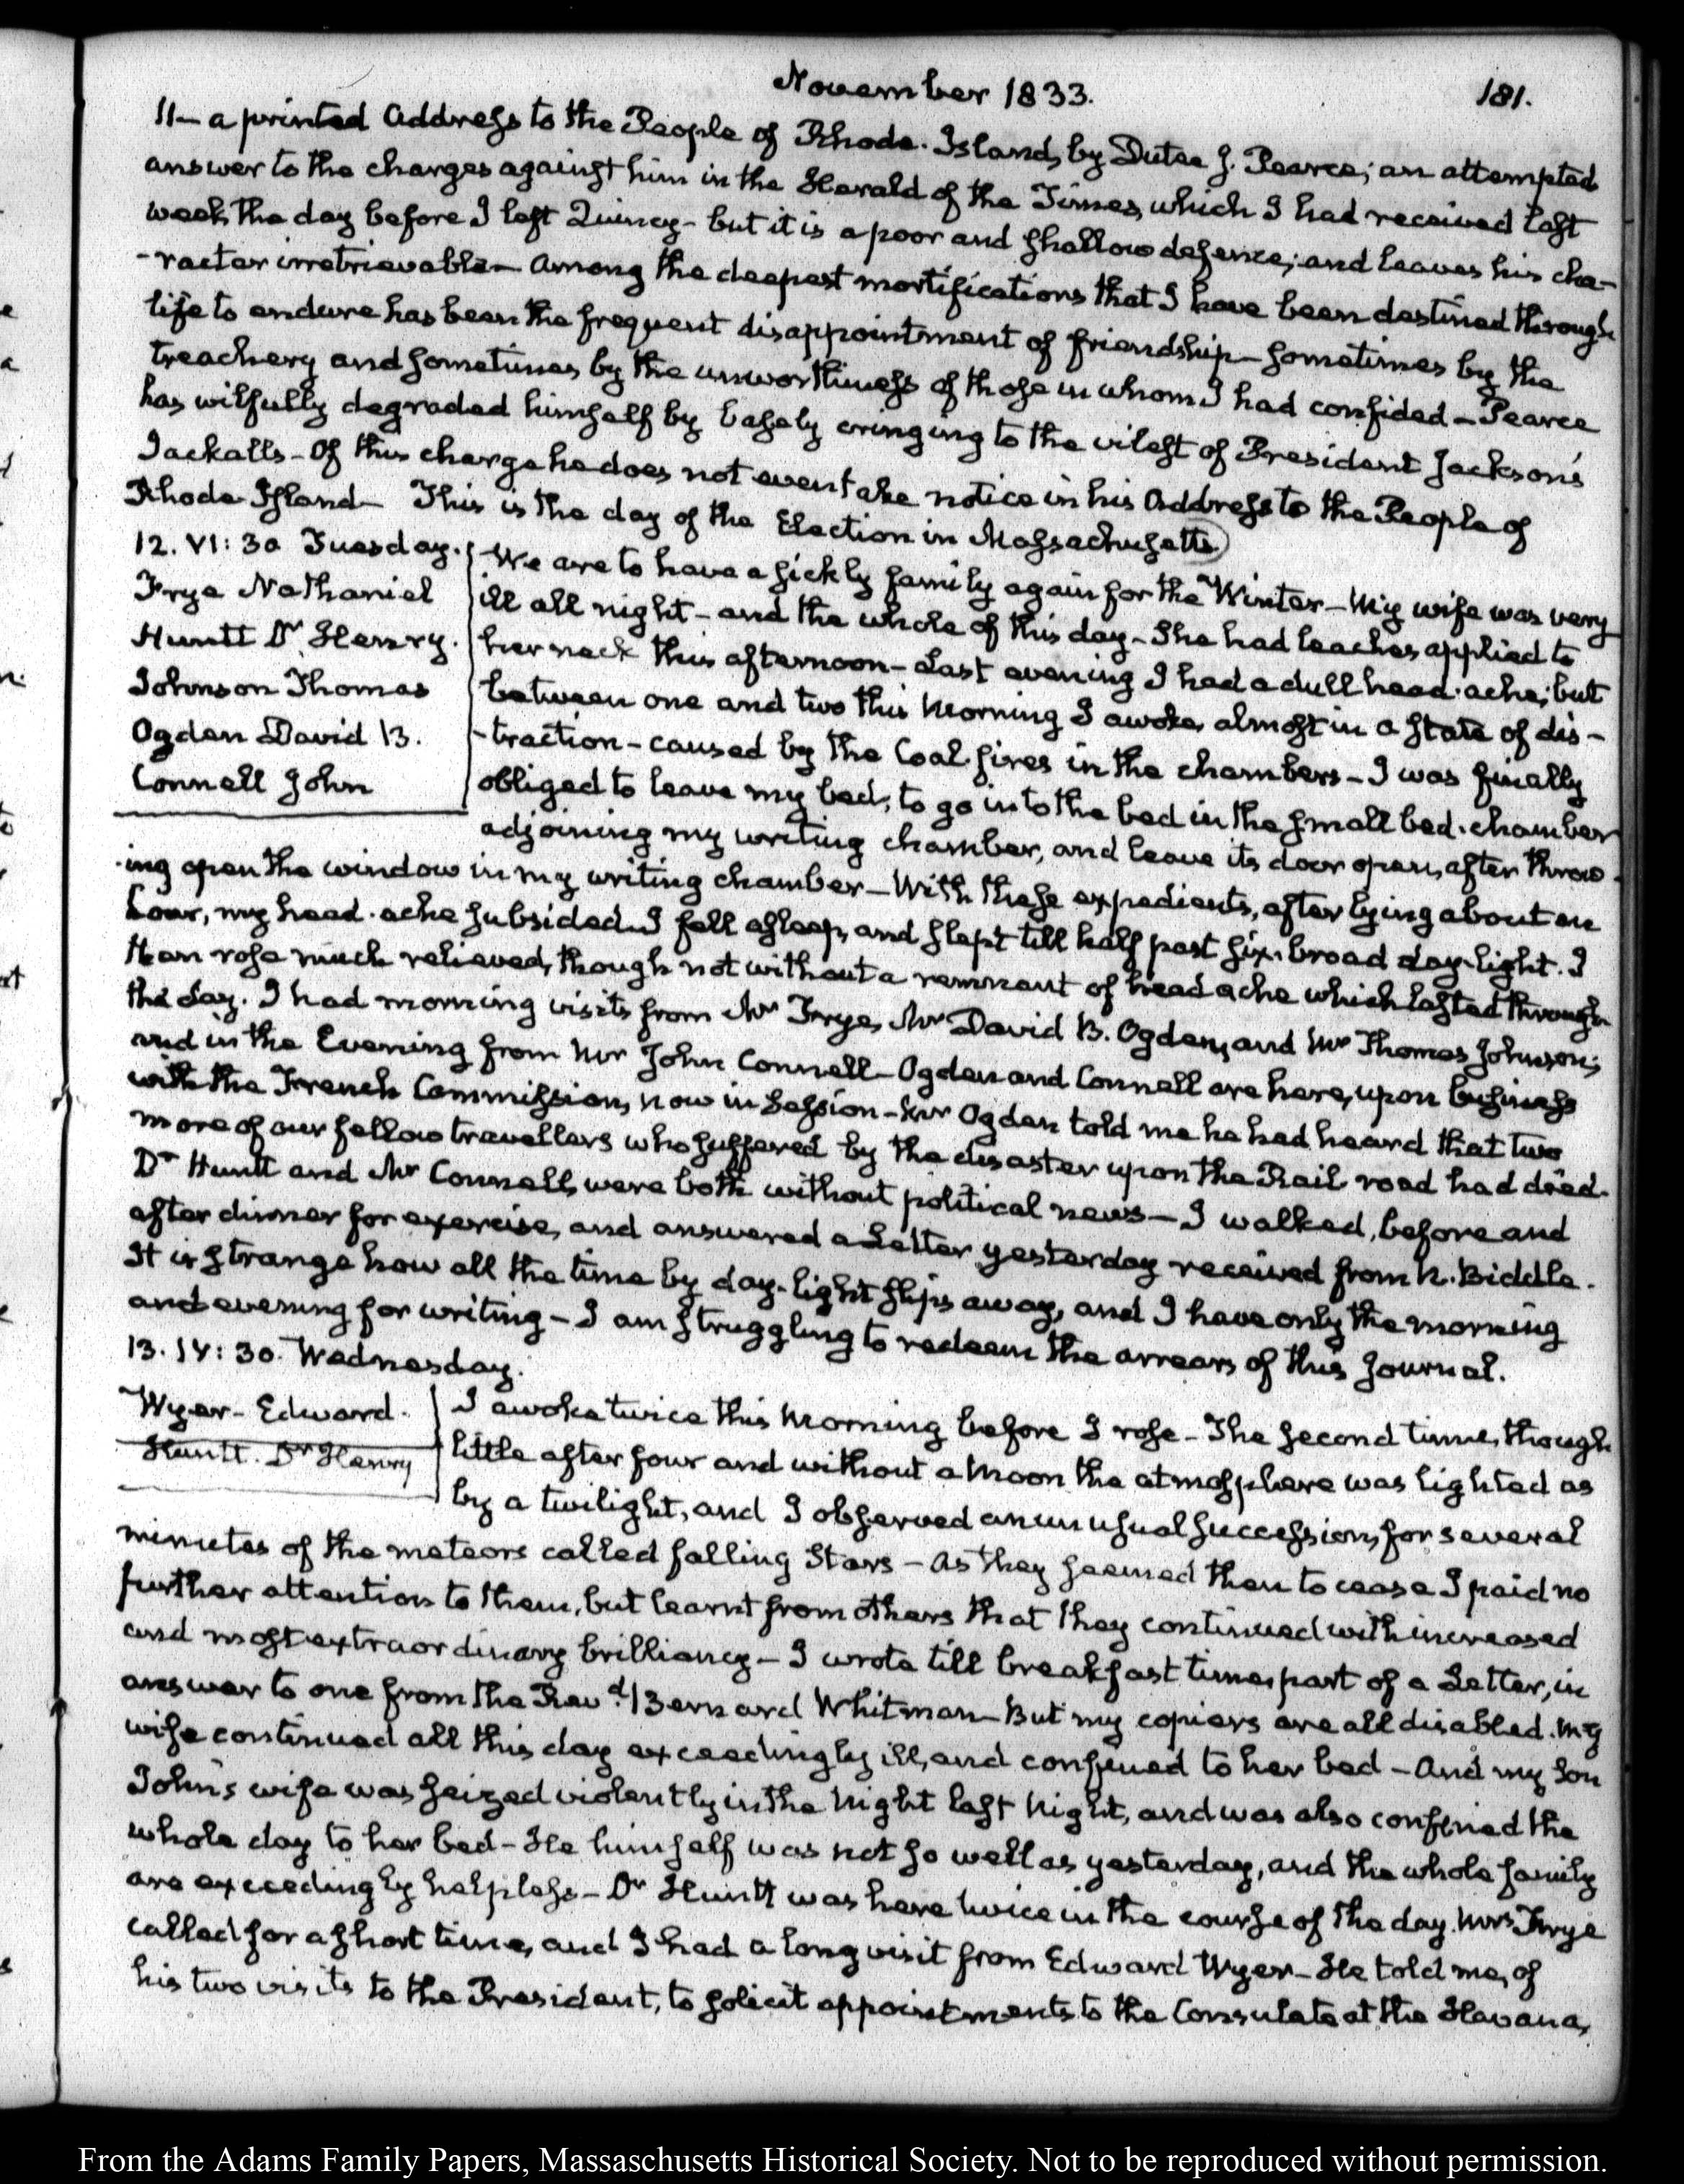 November 1833.
181.
11— a printed Address to the People of Rhode-Island, by Dutee J. Pearce; an attempted
answer to the charges against him in the Herald of the Times, which I had received last
week, the day before I left Quincy— but it is a poor and shallow defence; and leaves his cha-
-racter irretrievable— Among the deepest mortifications that I have been destined through
life to endure has been the frequent disappointment of friendship— sometimes by the
treachery and sometimes by the unworthiness of those in whom I had confided— Pearce
has wilfully degraded himself by basely cringing to the vilest of President Jackson's
Jackalls— Of this charge he does not even take notice in his Address to the People of
Rhode Island— This is the day of the Election in Massachusetts
12. VI: 30 Tuesday.
Frye Nathaniel
Huntt Dr. Henry.
Johnson Thomas
Ogden David B.
Connell John
We are to have a sickly family again for the Winter— My wife was very
ill all night— and the whole of this day— She had leaches applied to
her neck this afternoon— Last evening I had a dull head-ache; but
between one and two this Morning I awoke, almost in a state of dis-
-traction— caused by the Coal fires in the chambers— I was finally
obliged to leave my bed, to go into the bed in the small bed-chamber
adjoining my writing chamber, and leave its door open, after throw-
-ing open the window in my writing chamber— With these expedients, after lying about an
hour, my head-ache subsided. I fell asleep, and slept till half past six, broad day-light. I
then rose much relieved, though not without a remnant of head ache which lasted through
the day. I had morning visits from Mr Frye, Mr David B. Ogden, and Mr Thomas Johnson;
and in the Evening from Mr John Connell— Ogden and Connell are here, upon business
with the French Commission, now in Session— Mr Ogden told me he had heard that two
more of our fellow travellers who suffered by the disaster upon the Rail road had died.
Dr Huntt and Mr Connell, were both without political news— I walked, before and
after dinner for exercise, and answered a Letter yesterday received from N. Biddle.
It is strange how all the time by day-light slips away, and I have only the morning
and evening for writing— I am struggling to redeem the arrears of this Journal.
13. IV: 30. Wednesday.
Wyer— Edward.
Huntt. Dr Henry
I awoke twice this Morning before I rose— The second time, though
little after four and without a Moon the atmosphere was lighted as
by a twilight, and I observed an unusual succession, for several
minutes of the meteors called falling Stars— As they seemed then to cease I paid no
further attention to them, but learnt from others that they continued with increased
and most extraordinary brilliancy— I wrote till breakfast time, part of a Letter, in
answer to one from the Revd. Bernard Whitman— But my copiers are all disabled. My
wife continued all this day exceedingly ill, and confined to her bed— And my Son
John's wife was seized violently in the Night last Night, and was also confined the
whole day to her bed— He himself was not so well as yesterday, and the whole family
are exceedingly helpless— Dr Huntt was here twice in the course of the day. Mrs Frye
called for a short time, and I had a long visit from Edward Wyer— He told me, of
his two visits to the President, to solicit appointments to the Consulate at the Havana,
From the Adams Family Papers, Massachusetts Historical Society. Not to be reproduced without permission.